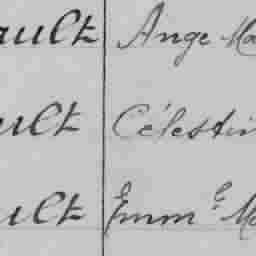 ault Ange Ma
ult Célestin
ult Emm.e Ma